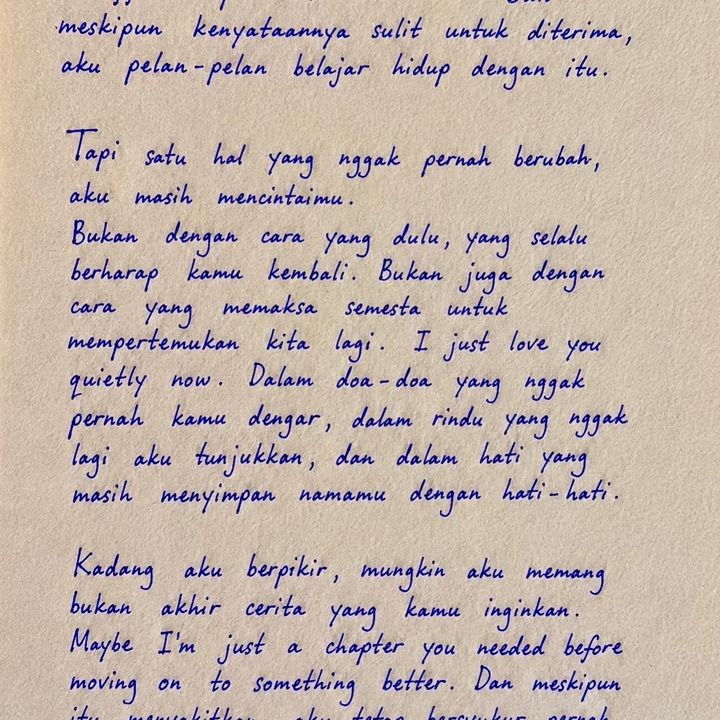 meskipun kenyataannya sulit untuk diterima,
aku pelan-pelan belajar hidup dengan itu.
Tapi satu hal yang nggak pernah berubah,
aku masih mencintaimu.
Bukan dengan cara yang dulu, yang selalu
berharap kamu kembali. Bukan juga dengan
cara yang memaksa semesta untuk
mempertemukan kita lagi. I just love you
quietly now. Dalam doa-doa yang nggak
pernah kamu dengar, dalam rindu yang nggak
lagi aku tunjukkan, dan dalam hati yang
masih menyimpan namamu dengan hati-hati.
Kadang aku berpikir, mungkin aku memang
bukan akhir cerita yang kamu inginkan.
Maybe I'm just a chapter you needed before
moving on to something better. Dan meskipun
itu menyakitkan, aku tetap bersyukur pernah